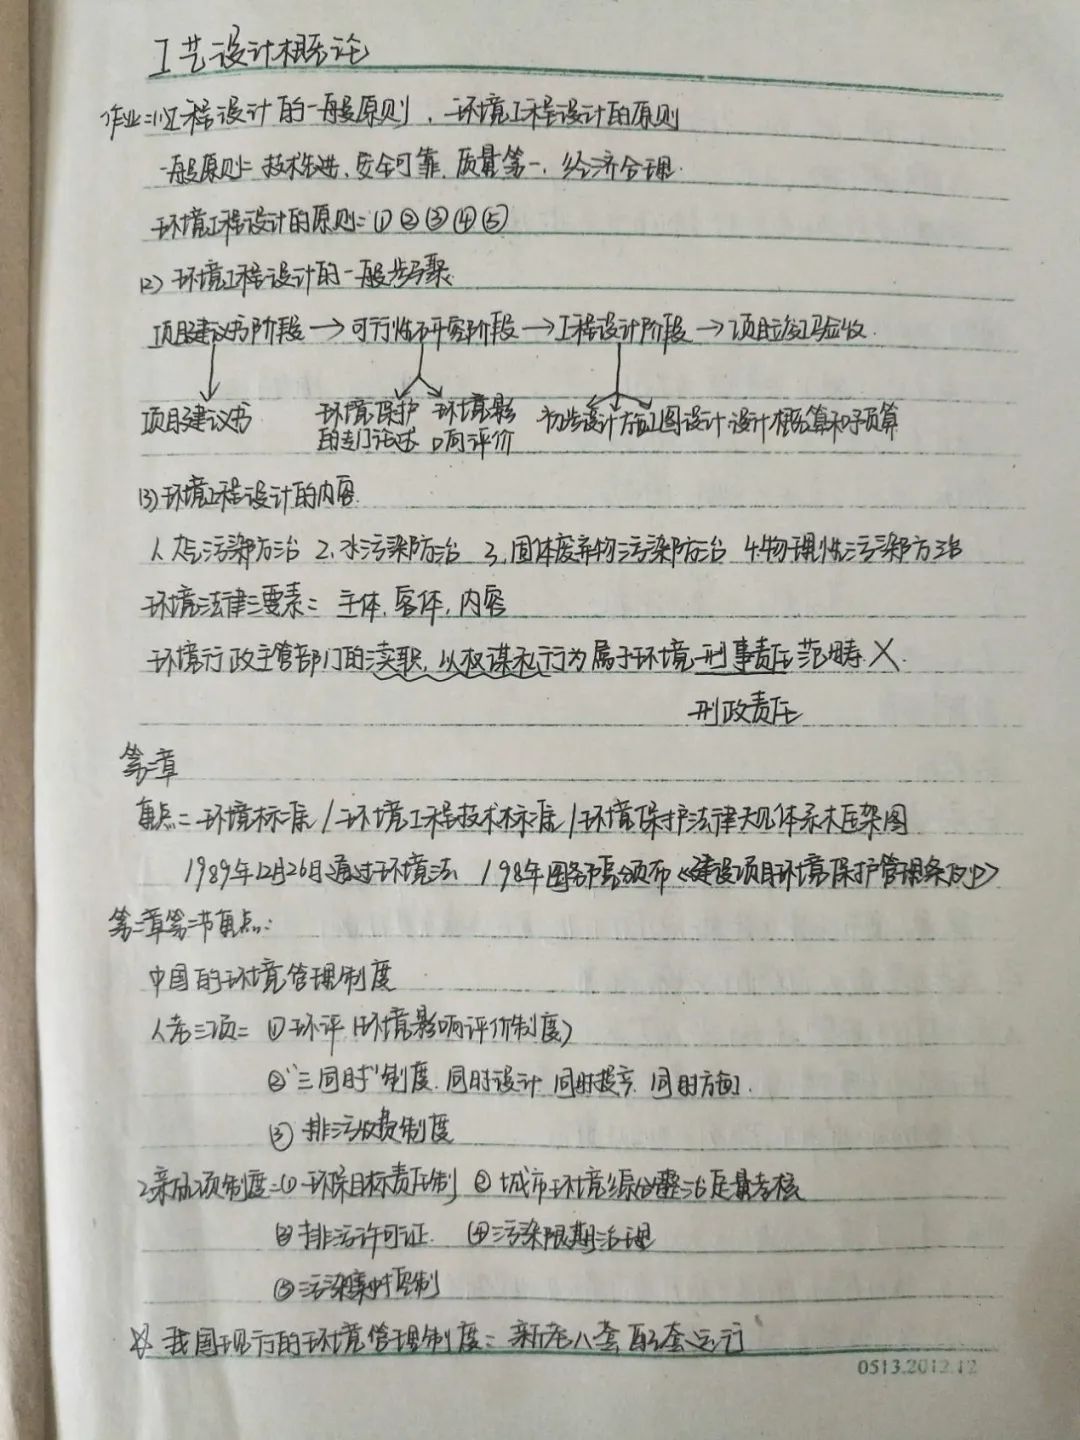 工艺设计概论
作业:(1)工程设计的一般原则、环境工程设计的原则
一般原则:技术先进、安全可靠、质量第一、经济合理.
环境工程设计的原则:①②③④⑤
(2)环境工程设计的一般步骤.
项目建议书阶段→可行性研究阶段→工程设计阶段→项目竣工验收.
项目建议书 环境保护的专门论述 环境影响评价 初步设计 施工图设计 设计概算和预算
(3)环境工程设计的内容.
1.大气污染防治 2.水污染防治 3.固体废弃物污染防治 4.物理性污染防治
环境法律三要素:主体,客体,内容
环境行政主管部门的渎职,以权谋私行为属于环境刑事责任范畴.X.
刑政责任
第二章
重点:环境标准/环境工程技术标准/环境保护法律法规体系框架图
1989年12月26日通过环境法 198年国务院颁布《建设项目环境保护管理条例》
第二章第二节重点:
中国的环境管理制度
1.老三项:①环评(环境影响评价制度)
②"三同时"制度.同时设计 同时投产.同时
③排污收费制度
2.新五项制度:①环保目标责任制 ②城市环境综合整治定量考核
③排污许可证. ④污染限期治理
⑤污染集中控制
☆ 我国现行的环境管理制度:新老八套配套运行
0513.2012.12